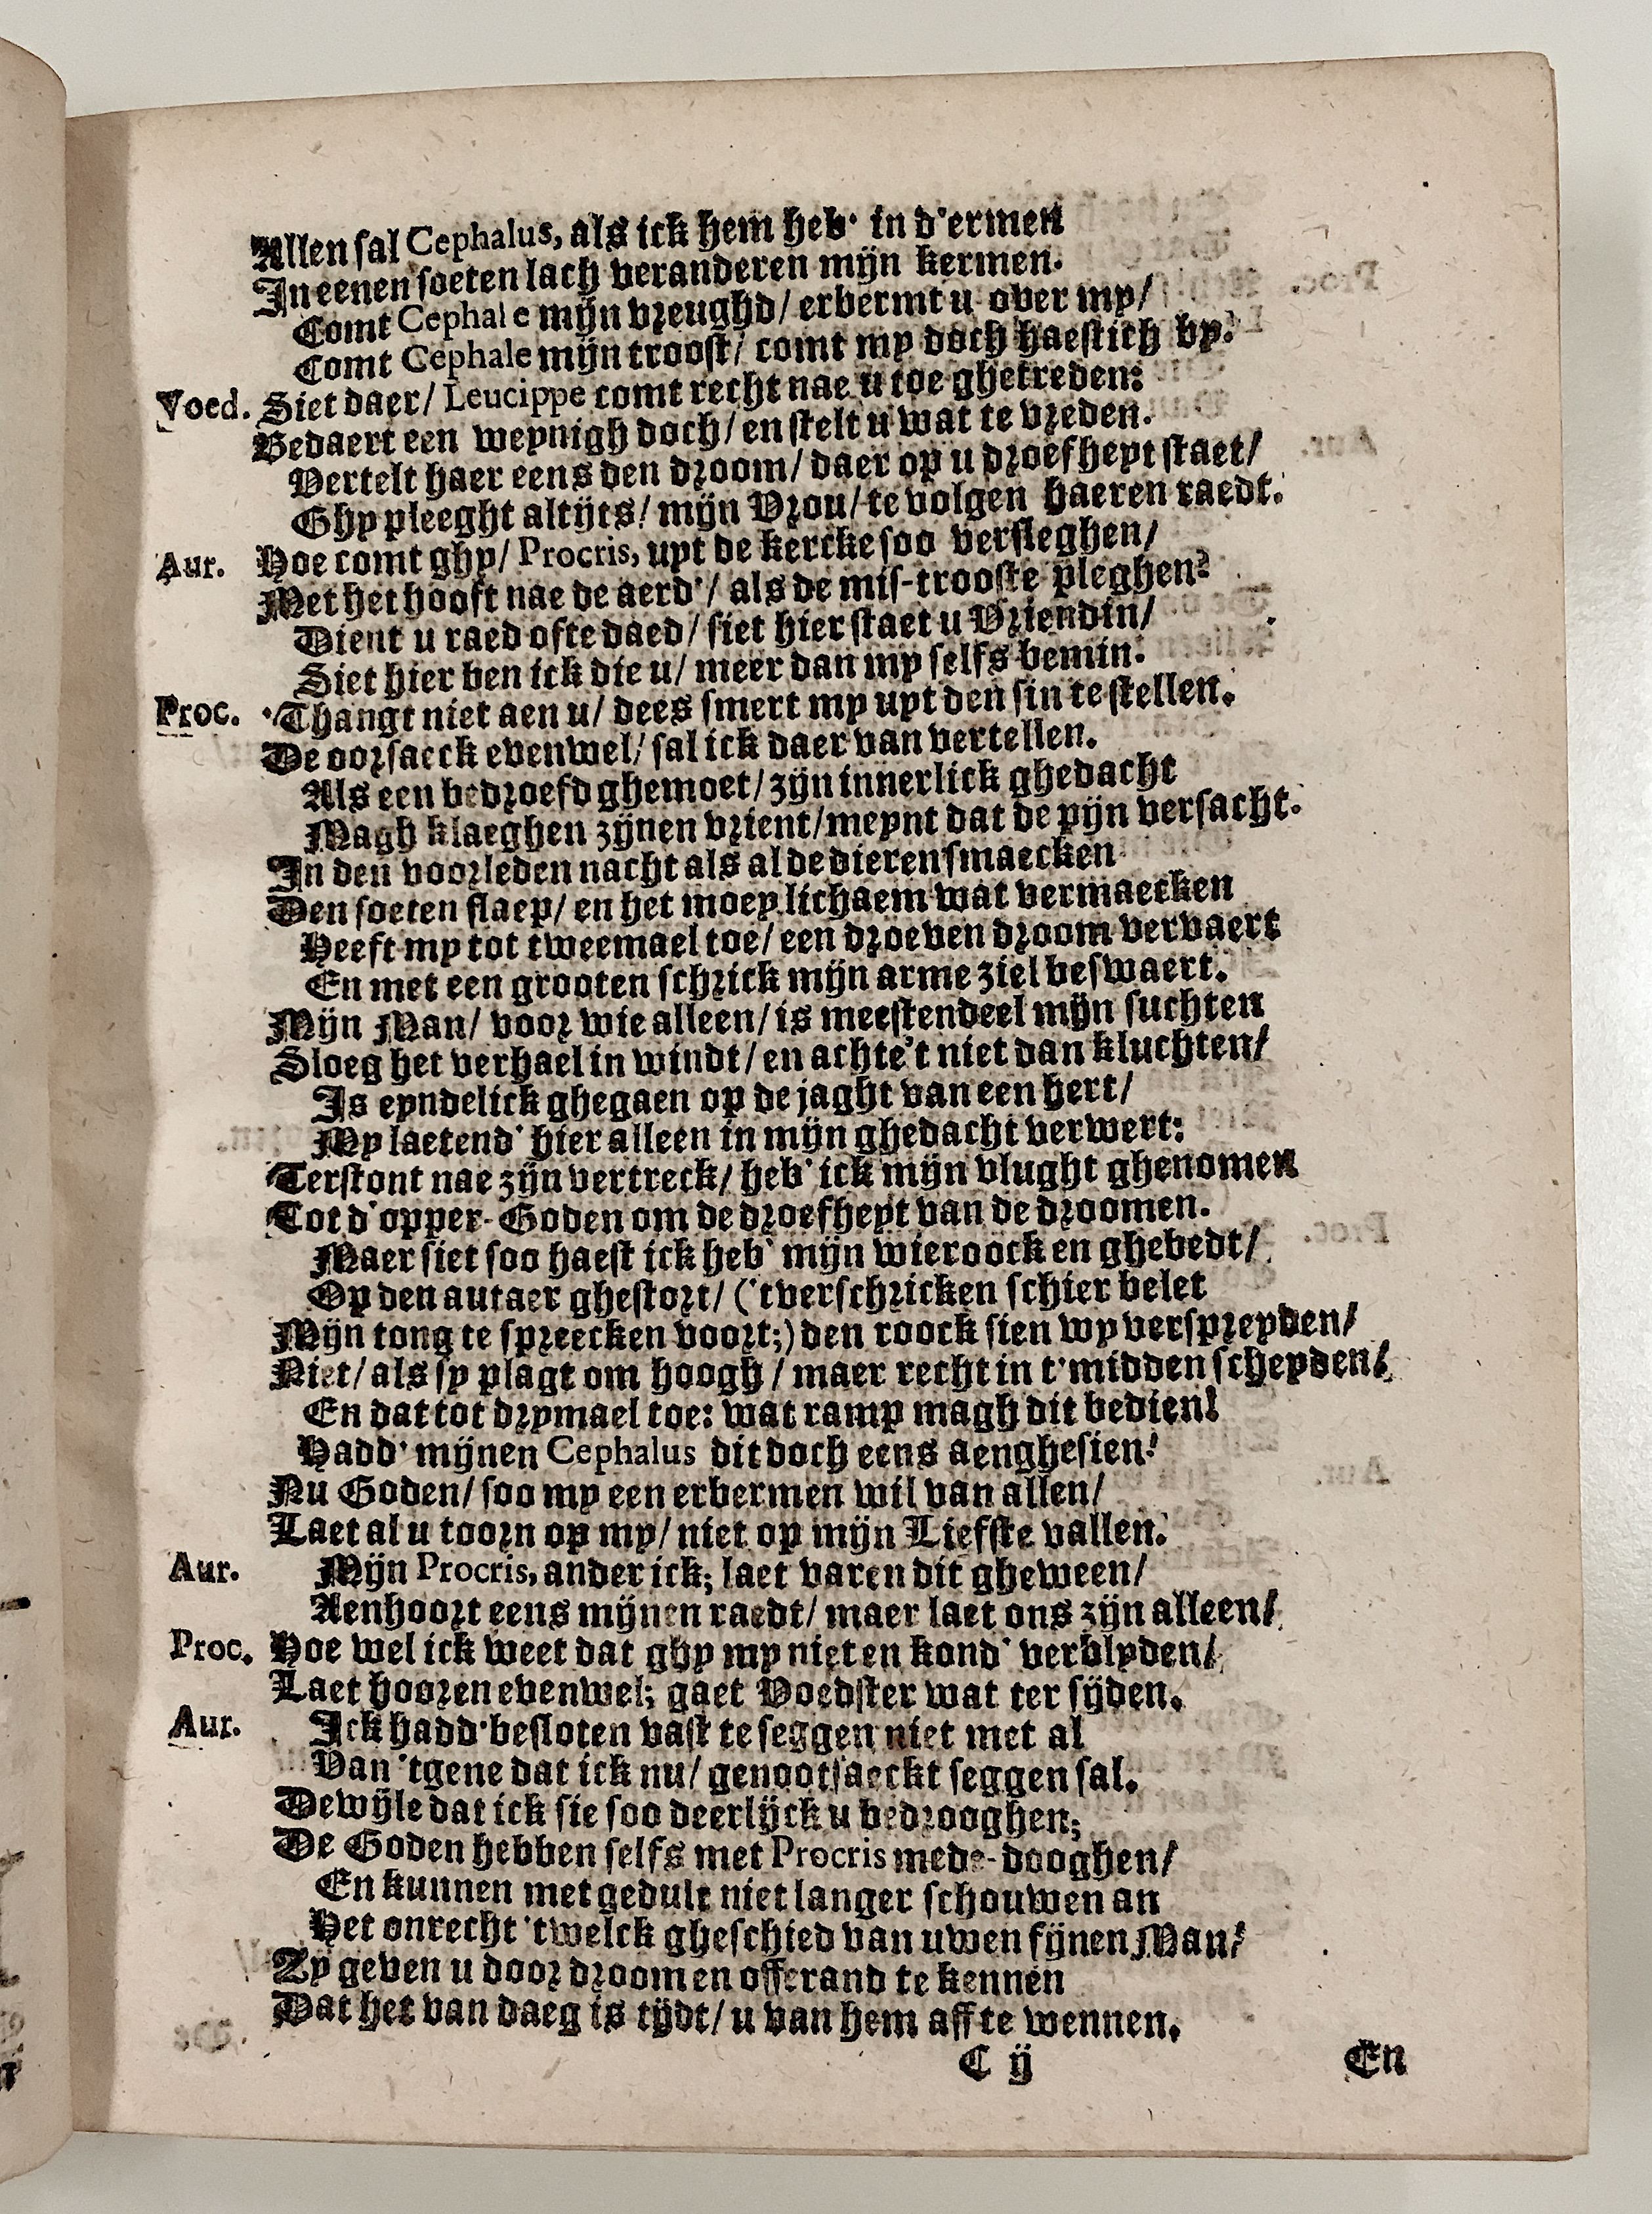 Allen sal Cephalus, als ick hem heb' in d'ermen
In eenen soeten lach veranderen mijn kermen.
Comt Cephale mijn vreughd/ erbermt u over my/
Comt Cephale mijn troost/ comt my doch haestich by.
Voed. Siet daer/ Leucippe comt recht nae u toe ghetreden:
Bedaert een weynigh doch/ en stelt u wat te vreden.
Vertelt haer eens den droom/ daer op u droefheyt staet/
Ghy pleeght altijts/ mijn Vrou/ te volgen haeren raedt.
Aur. Hoe comt ghy/ Procris, uyt de kercke soo versleghen/
Met het hooft nae de aerd'/ als de mis-trooste pleghen?
Dient u raed ofte daed/ siet hier staet u Vriendin/
Siet hier ben ick die u/ meer dan my selfs bemin:
Proc. 'Thangt niet aen u/ dees smert my uyt den sin te stellen.
De oorsaeck evenwel/ sal ick daer van vertellen.
Als een bedroefd ghemoet/ zijn innerlick ghedacht
Magh klaeghen zijnen vrient/ meynt dat de pijn versacht.
In den voorleden nacht als al de dieren smaecken
Den soeten slaep/ en het moey lichaem wat vermaecken
Heeft my tot tweemael toe/ een droeven droom vervaert
En met een grooten schrick mijn arme ziel beswaert.
Mijn Man/ voor wie alleen/ is meestendeel mijn suchten
Sloeg het verhael in windt/ en achte't niet dan kluchten/
Is eyndelick ghegaen op de jaght van een hert/
My laetend' hier alleen in mijn ghedacht verwert:
Terstont nae zijn vertreck/ heb' ick mijn vlught ghenomen
Tot d'opper-Goden om de droefheyt van de droomen.
Maer siet soo haest ick heb' mijn wieroock en ghebedt/
Op den autaer ghestort/ ('tverschricken schier belet
Mijn tong te spreecken voort;) den roock sien wy verspreyden/
Niet/ als sy plagt om hoogh/ maer recht in t'midden scheyden/
En dat tot drymael toe: wat ramp magh dit bedien!
Hadd' mijnen Cephalus dit doch eens aenghesien!
Nu Goden/ soo my een erbermen wil van allen/
Laet al u toorn op my/ niet op mijn Liefste vallen.
Aur. Mijn Procris, ander ick; laet varen dit gheween/
Aenhoort eens mijnen raedt/ maer laet ons zijn alleen/
Proc. Hoe wel ick weet dat ghy my niet en kond' verblyden/
Laet hooren evenwel; gaet Voedster wat ter sijden.
Aur. Ick hadd' besloten vast te seggen niet met al
Van 'tgene dat ick nu/ genootsaeckt seggen sal.
Dewijle dat ick sie soo deerlijck u bedrooghen;
De Goden hebben selfs met Procris mede-dooghen/
En kunnen met gedult niet langer schouwen an
Het onrecht 'twelck gheschied van uwen fijnen Man!
Zy geven u door droom en offerand te kennen
Dat het van daeg is tijdt/ u van hem aff te wennen.
C ij En